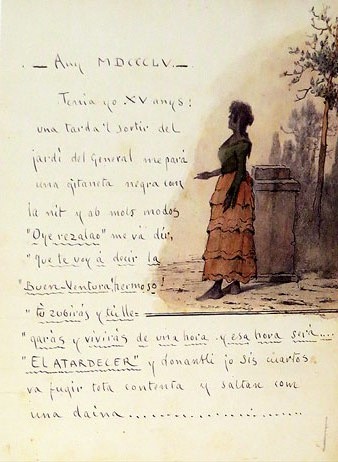 . — Any MDCCCLV. —
Tenia yo XV anys:
una tarda 'l sortir del
jardí del General me pará
una gitaneta negra com
la nit y ab mols modos
"Oye rezalao" me vá dir,
"Que te voy á decir la
"Buen-Ventura, hermoso
"tu zubirás y te lle=
"garás y vivirás de una hora y esa hora será....
"EL ATARDECER" y donantli jo sis cuartos
va fugir tota contenta y saltan com
una daina........................